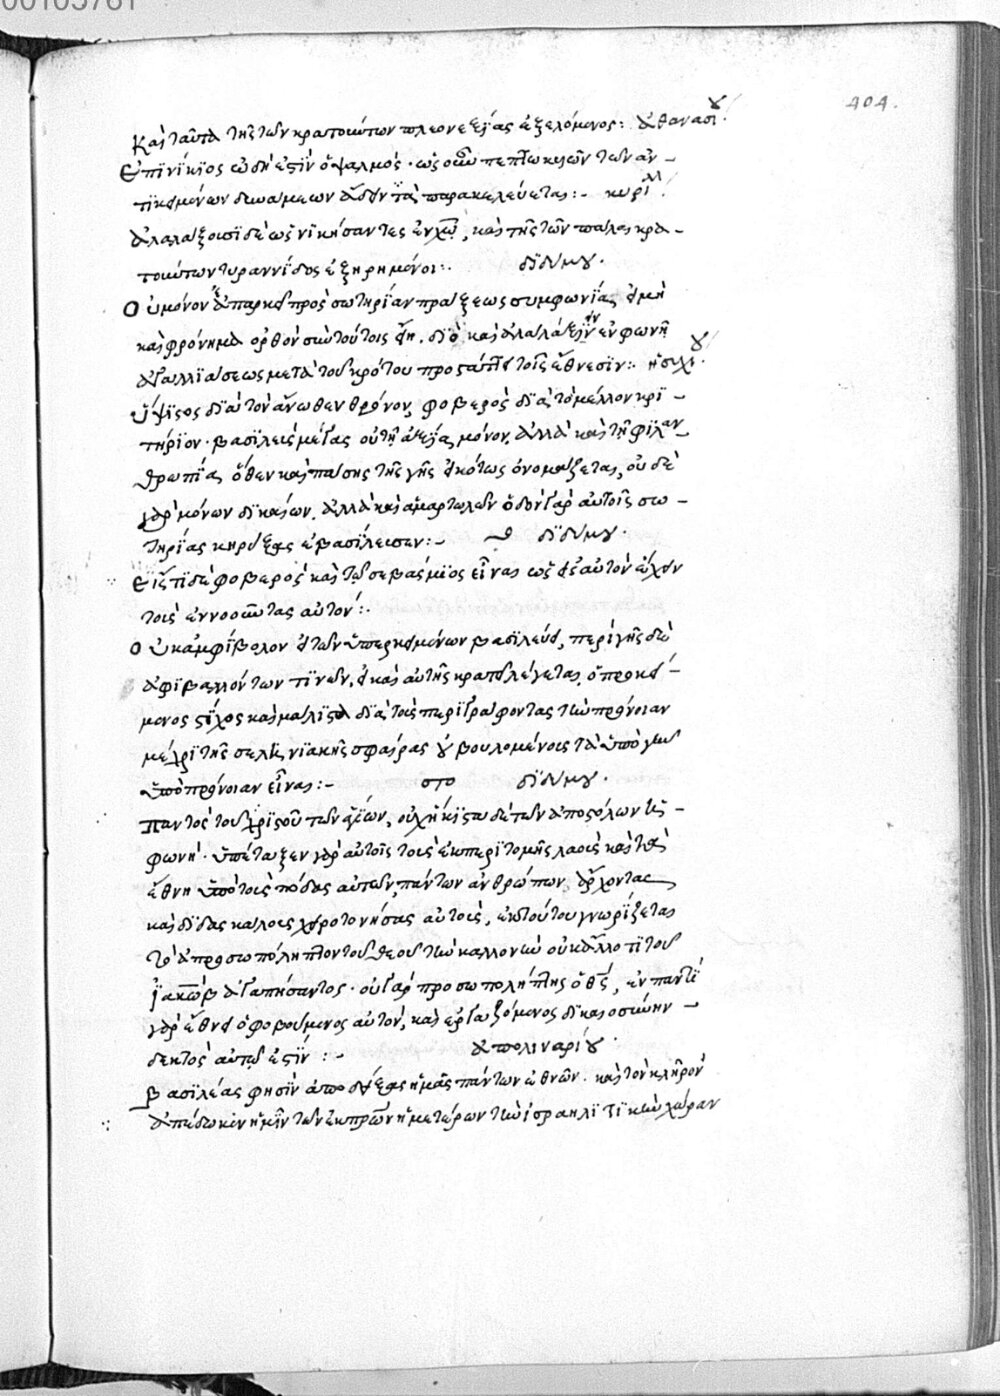 00105781
404.
Καὶ ταῦτα τῆς τῶν κρατούντων πλεονεξίας ἐξελόμενος: ἀθανασίου.
Ἐπινίκιος ὠδή ἐστὶν ὁ ψαλμός· ὡς οὖν πεπτωκυιῶν τῶν ἀν-
τικειμένων δυνάμεων ἄδειν τὰ παρακελεύεται:- κυρίλλου
ἀλαλάξουσι δὲ ὡς νικήσαντες ἐν χῶ, καὶ τῆς τῶν πάλαι κρα-
τούντων τυραννίδος ἐξηρημένοι:. διδύμου.
Οὐ μόνον ἐξάπαρκεῖ πρὸς σωτηρίαν πράξεως συμφωνία, εἰ μὴ
καὶ φρόνημα ὀρθὸν σὺν τούτοις εἴη. διὸ καὶ ἀλαλάξειν ἐν φωνῆ
ἀγαλλιάσεως μετὰ τοῦ κρότου προστάττει τοῖς ἔθνεσιν:. ἡσυχίου.
Ὕψιστος διὰ τὸν ἄνωθεν θρόνον, φοβερὸς διὰ τὸ μέλλον κρι-
τήριον· βασιλεὺς μέγας οὐ τῆ ἀξία μόνον, ἀλλὰ καὶ τῆ φιλαν-
θρωπία, ὅθεν καὶ πάσης τῆς γῆς εἰκότως ὀνομάζεται, οὐδὲ
γὰρ μόνων δικαίων, ἀλλὰ καὶ ἁμαρτωλῶν ὁδὸν γὰρ αὐτοῖς σω-
τηρίας κηρύξας ἐβασίλευσεν:- διδύμου.
Εἰ ἔστι δὲ φοβερὸς καὶ τῶ σεβάσμιος εἶναι ὡς δι' αὐτὸν ἔχειν
τοῖς ἐννοοῦντας αὐτόν:.
Οὐκ ἀμφίβολον εἰ τῶν ὑπερκειμένων βασιλεὺς, περὶ γῆς δὲ
ἀφιβαλλόντων τινῶν, εἰ καὶ αὐτῆς κρατεῖ λέγεται, ὁ προκεί-
μενος στίχος καὶ μάλιστα διὰ τοὺς περιγράφοντας τὴν πρόνοιαν
μέχρι τῆς σεληνιακῆς σφαίρας οὐ βουλομένοις τὰ ὑπὸ γῆν
ὑπὸ πρόνοιαν εἶναι:- διδύμου.
Παντὸς τοῦ χριστοῦ τῶν ἁγίων, οὐχ ἥκιστα δὲ τῶν ἀποστόλων ἡ
φωνή· ὑπέταξεν γὰρ αὐτοῖς τοὺς ἐκ περιτομῆς λαοὺς καὶ τὰ
ἔθνη ὑπὸ τοὺς πόδας αὐτῶν, πάντων ἀνθρώπων ἄρχοντας
καὶ διδασκάλους χειροτονήσας αὐτούς, ἐκ τούτου γνωρίζεται
τὸ ἀπροσωπόληπτον τοῦ θεοῦ τὴν καλλονὴν οὐκ ἄλλο τι τοῦ
ἰακὼβ ἀγαπήσαντος· οὐ γὰρ προσωπολήπτης ὁ θς, ἐν παντὶ
γὰρ ἔθνει ὁ φοβούμενος αὐτὸν, καὶ ἐργαζόμενος δικαιοσύνην
δεκτὸς αὐτῶ ἐστίν :- ἀπολιναρίου.
βασιλέας φησὶν ἀποδείξας ἡμᾶς πάντων ἐθνῶν. καὶ τὸν κλῆρον
ἀπέδωκεν ἡμῖν τῶν ἐκ πρῶν ἡμετέρων τὴν ἰσραηλιτικὴν χώραν